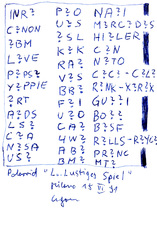 INR? P?O NA?I
C?NON U?S M?RC?D?S
?BM ?SL HI?LER
L?VE K?K C?N
P?PS? RA? N?TO
Y?PPIE V?S C?C?-C?L?
?RT ?BB R?NK-X?R?X
A?DS F?I GU??I
LS? U?O BO??
C?A CA? B?SF
N?SA 4W? R?LLS-R?YC?
US? AB? PR?NC
BM? MT?
Polaroid "L..Lustiges Spiel"
Milano 15 VI 91